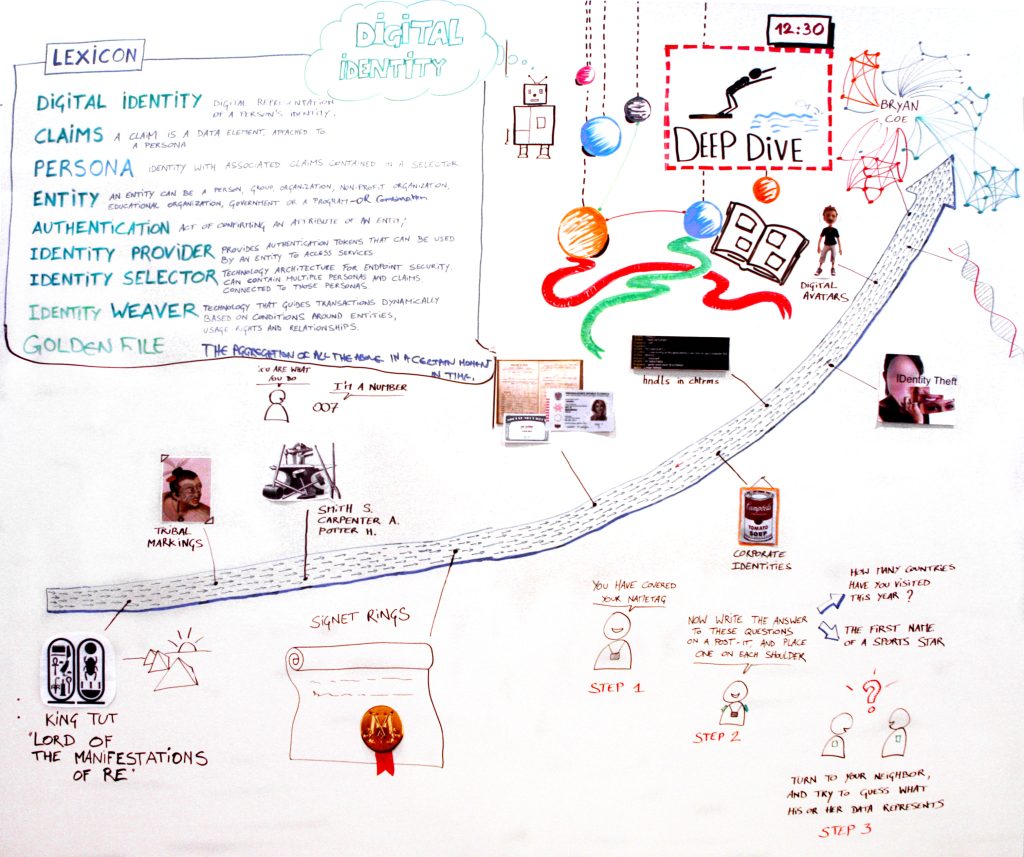 LEXICON
DIGITAL
IDENTITY
DIGITAL IDENTITY DIGITAL REPRESENTATION
OF A PERSON'S IDENTITY.
CLAIMS A CLAIM IS A DATA ELEMENT, ATTACHED TO
A PERSONA
PERSONA IDENTITY WITH ASSOCIATED CLAIMS CONTAINED IN A SELECTOR
ENTITY AN ENTITY CAN BE A PERSON, GROUP, ORGANIZATION, NON-PROFIT ORGANIZATION.
EDUCATIONAL ORGANIZATION, GOVERNMENT OR A PROGRAM-OR Combination
AUTHENTICATION ACT OF CONFIRMING AN ATTRIBUTE OF AN ENTITY;
IDENTITY PROVIDER PROVIDES AUTHENTICATION TOKENS THAT CAN BE USED
BY AN ENTITY TO ACCESS SERVICES
IDENTITY SELECTOR TECHNOLOGY ARCHITECTURE FOR ENDPOINT SECURITY.
CAN CONTAIN MULTIPLE PERSONAS AND CLAIMS
CONNECTED TO THOSE PERSONAS
IDENTITY WEAVER TECHNOLOGY THAT GUIDES TRANSACTIONS DYNAMICALLY
BASED ON CONDITIONS AROUND ENTITIES,
USAGE RIGHTS AND RELATIONSHIPS.
GOLDEN FILE THE AGGREGATION OF ALL THE ABOVE IN A CERTAIN MOMENT
IN TIME.
12:30
DEEP DIVE
BRYAN
COE
DIGITAL
AVATARS
IDentity Theft
hndls in chtrms
SOCIAL SECURITY
YOU ARE WHAT
YOU DO
I'M A NUMBER
007
TRIBAL
MARKINGS
SMITH S.
CARPENTER A.
POTTER H.
Campbell's
TOMATO
SOUP
CORPORATE
IDENTITIES
SIGNET RINGS
M
KING TUT
'LORD OF
THE MANIFESTATIONS
OF RE'
YOU HAVE COVERED
YOUR NAMETAG
STEP 1
NOW WRITE THE ANSWER
TO THESE QUESTIONS
ON A POST-IT, AND PLACE
ONE ON EACH SHOULDER
STEP 2
HOW MANY COUNTRIES
HAVE YOU VISITED
THIS YEAR ?
THE FIRST NAME
OF A SPORTS STAR
?
TURN TO YOUR NEIGHBOR,
AND TRY TO GUESS WHAT
HIS OR HER DATA REPRESENTS
STEP 3